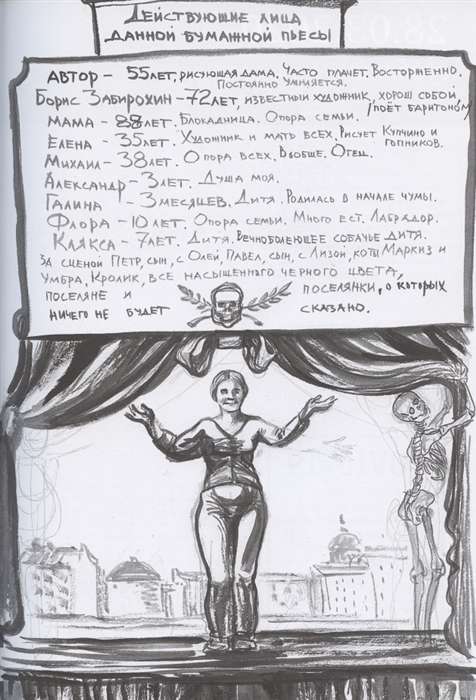 Действующие лица
данной бумажной пьесы
Автор – 55 лет, рисующая дама. Часто плачет. Восторженно.
Постоянно умиляется.
Борис Забирохин – 72 лет, известный художник, хорош собой
/поёт баритоном/
Мама – 88 лет. Блокадница. Опора семьи.
Елена – 35 лет. Художник и мать всех. Рисует Купчино и
гопников.
Михаил – 38 лет. Опора всех. Вообще. Отец.
Александр – 3 лет. Душа моя.
Галина – 3 месяцев. Дитя. Родилась в начале чумы.
Флора – 10 лет. Опора семьи. Много ест. Лабрадор.
Клякса – 7 лет. Дитя. Вечноболеющее собачье дитя.
За сценой Петр, сын, с Олей, Павел, сын, с Лизой, коты Маркиз и
Умбра, Кролик, все насыщенного черного цвета,
поселяне и поселянки, о которых
ничего не будет сказано.